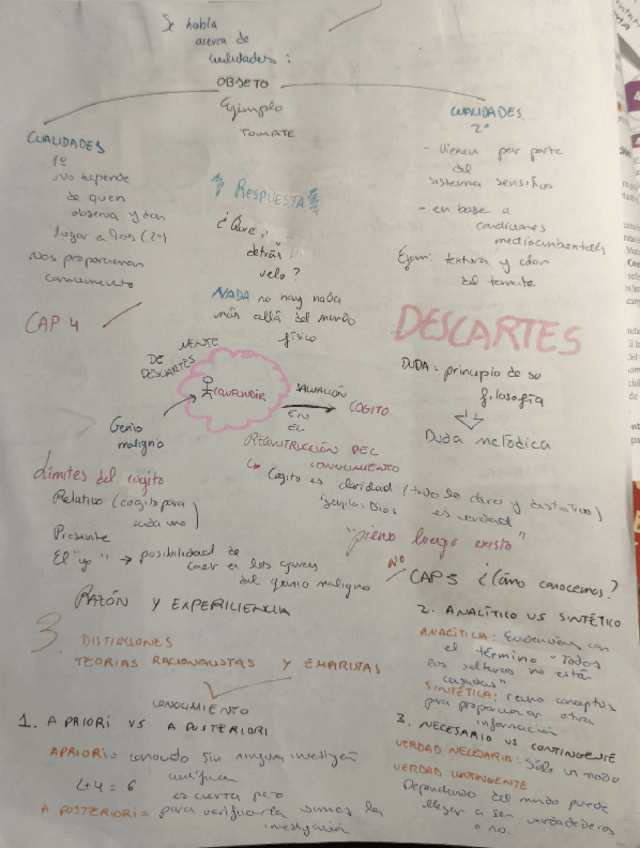 Se habla
acerca de
cualidades:
OBJETO
Ejemplo
TOMATE
CUALIDADES
1º
No depende
de quien
observa y dan
lugar a las (2º)
Nos proporcionan
conocimiento
CUALIDADES
2º
- Vienen por parte
del
sistema sensitivo
- en base a
condiciones
Ejem: textura y color
del tomate
RESPUESTA
detrás
velo?
NADA no hay nada
más allá del mundo
físico
CAP 4
DESCARTES
DUDA: principio de su
filosofía
Duda metódica
MENTE
DE
DESCARTES
CONFUNDIR
Genio
maligno
SALVACIÓN
EN
EL
COGITO
RECONSTRUCCIÓN DEL
CONOCIMIENTO
Cogito es claridad (todo lo claro y distintivo)
Ejemplo: Dios es verdad
"pienso luego existo"
Límites del cogito
Relativo (cogito para
cada uno)
Presente
El "yo" → posibilidad de
caer en las
del genio maligno
Nº
CAP 5 ¿Cómo conocemos?
RAZÓN Y EXPERIENCIA
3 DISTINCIONES
TEORIAS RACIONALISTAS Y EMPIRISTAS
CONOCIMIENTO
1. A PRIORI VS A POSTERIORI
A PRIORI = conocido sin ninguna
2+4 = 6
es cierta pero
A POSTERIORI = para verificarla
investigación
2. ANALÍTICO VS SINTÉTICO
ANALÍTICA: con
el término "Todos
los solteros no están
casados"
SINTÉTICA: reúno conceptos
para proporcionar otra
información
3. NECESARIO VS CONTINGENTE
VERDAD NECESARIA: Sólo un modo
VERDAD CONTINGENTE
Dependiendo del mundo puede
llegar a ser verdaderos
o no.